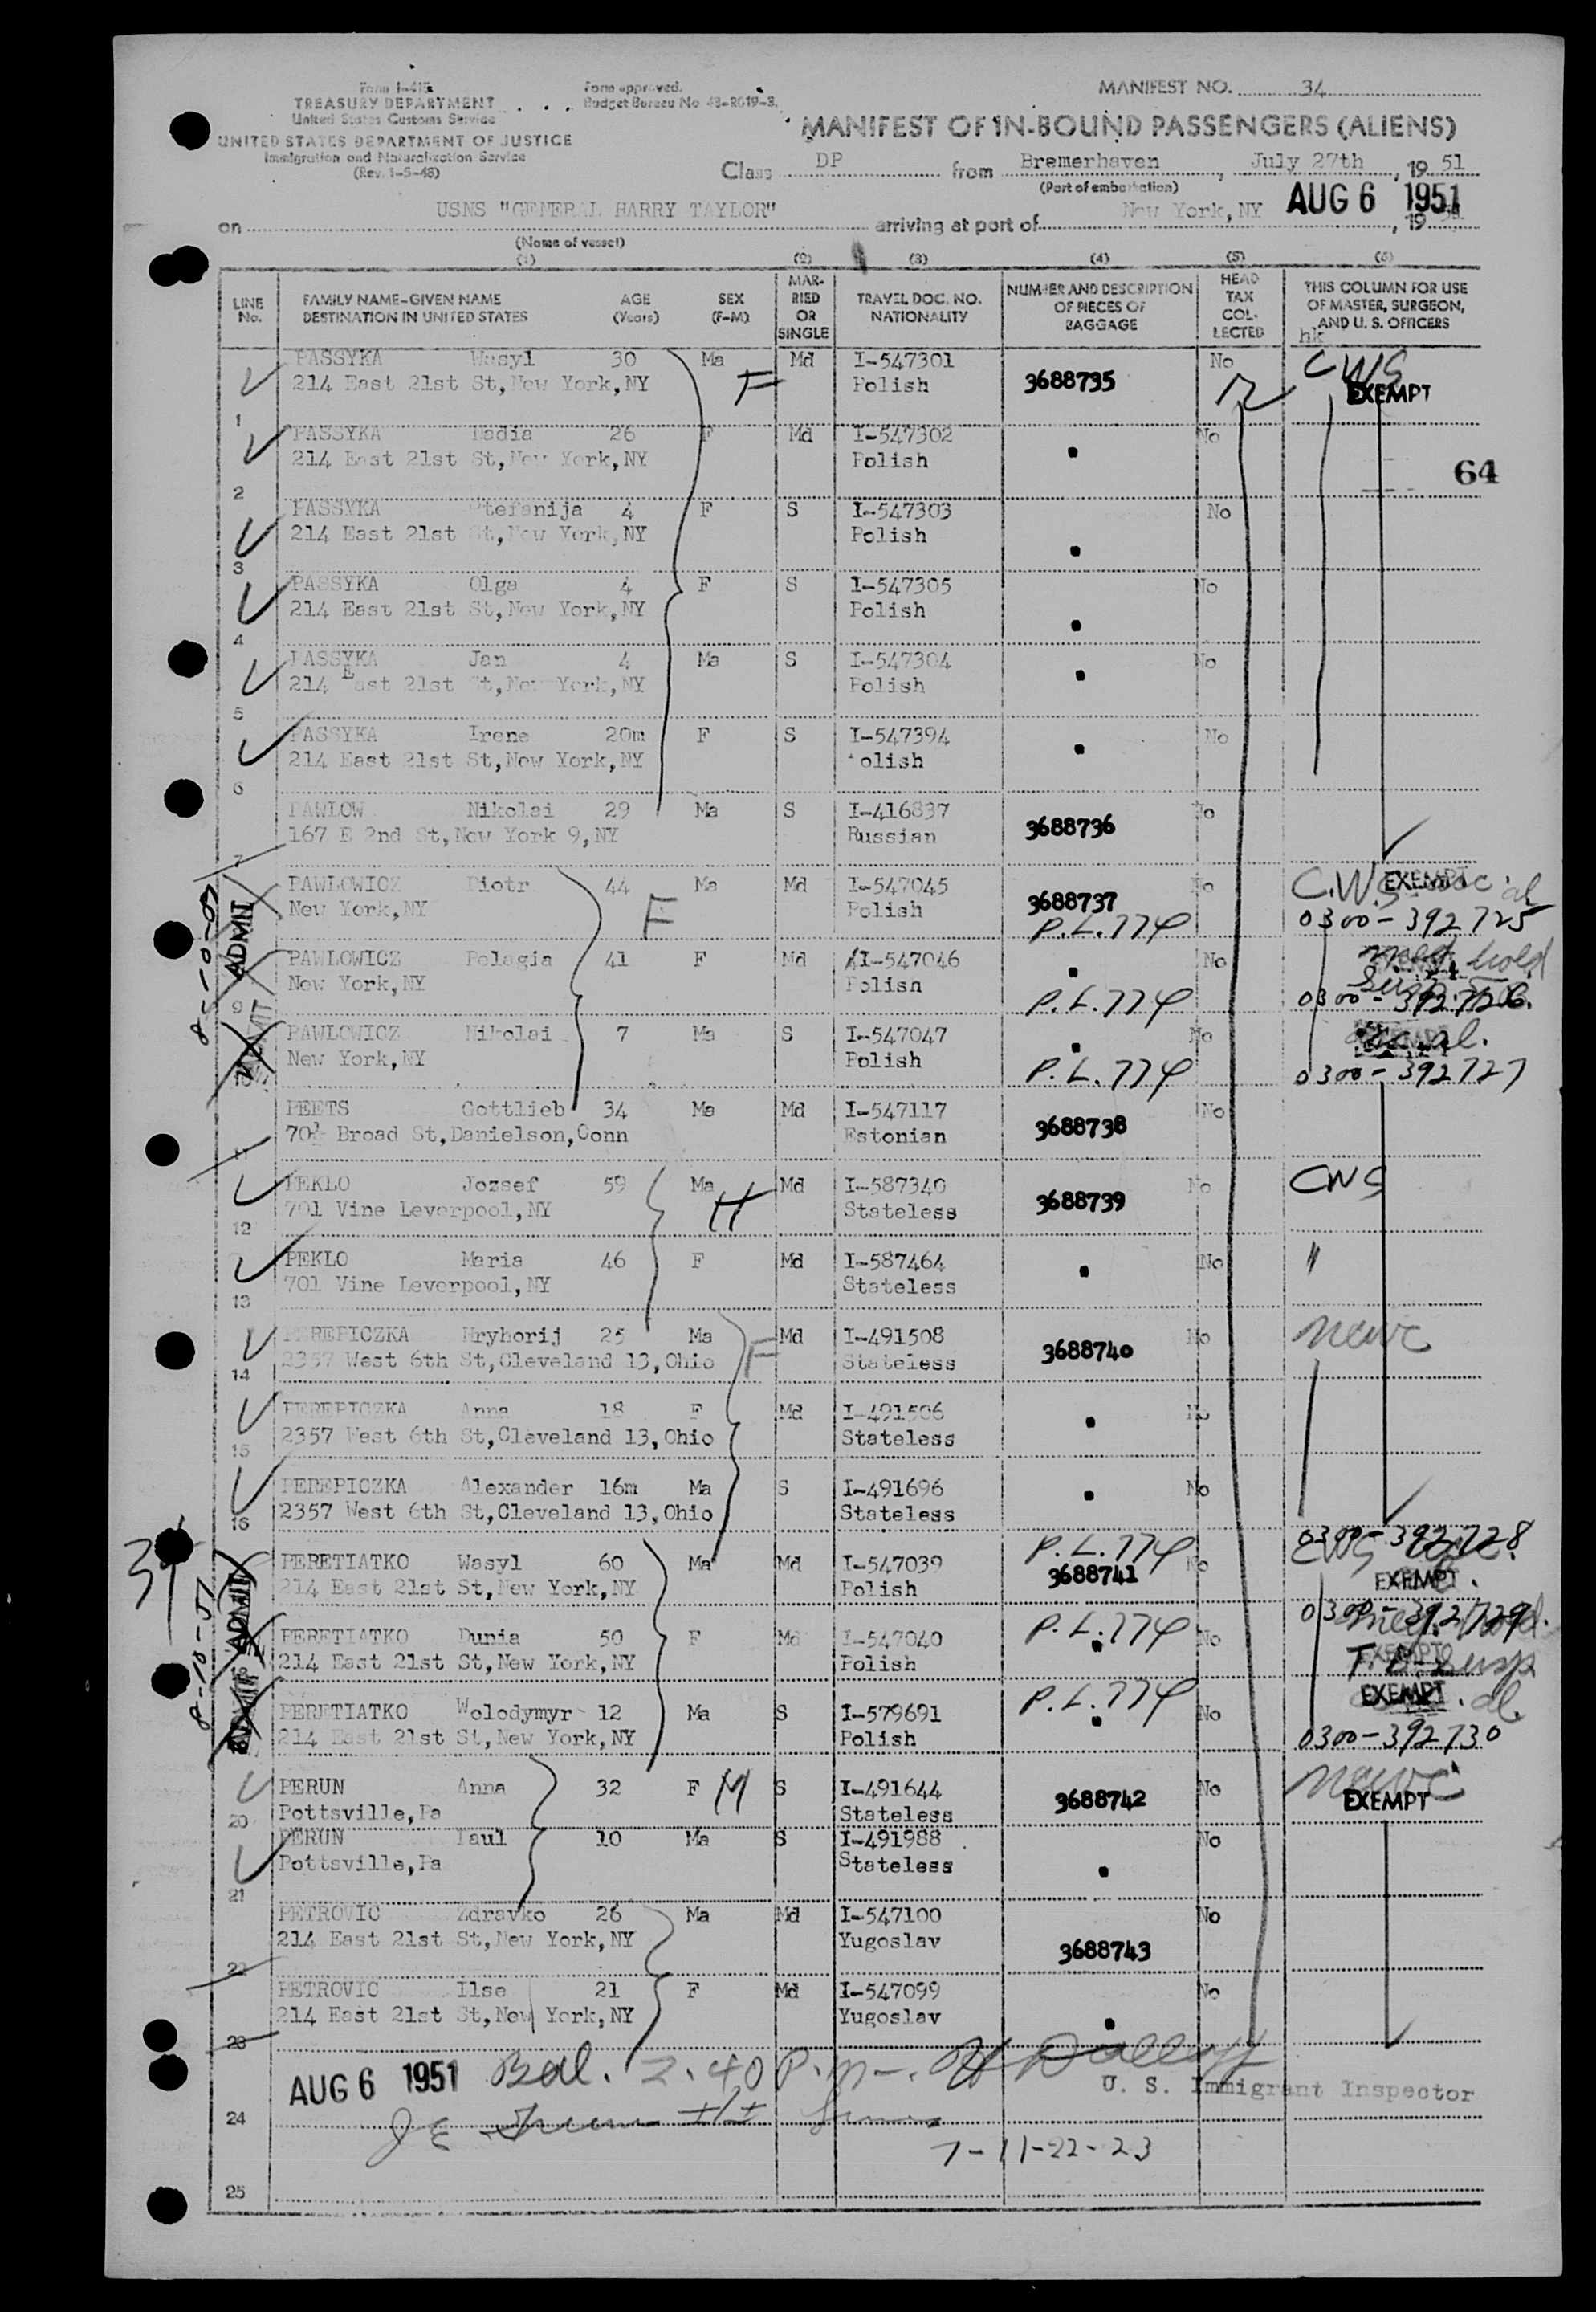 Form I-415
TREASURY DEPARTMENT
United States Customs Service
UNITED STATES DEPARTMENT OF JUSTICE
Immigration and Naturalization Service
(Rev. 1-5-48)
Form approved.
Budget Bureau No. 43-R019-3.
MANIFEST NO. 34
MANIFEST OF IN-BOUND PASSENGERS (ALIENS)
Class DP from Bremerhaven, July 27th, 1951
(Port of embarkation)
on USNS "GENERAL HARRY TAYLOR" arriving at port of New York, NY AUG 6 1951, 19
(Name of vessel)
(1) (2) (3) (4) (5) (6)
LINE No. FAMILY NAME-GIVEN NAME DESTINATION IN UNITED STATES AGE (Years) SEX (F-M) MARRIED OR SINGLE TRAVEL DOC. NO. NATIONALITY NUMBER AND DESCRIPTION OF PIECES OF BAGGAGE HEAD TAX COLLECTED THIS COLUMN FOR USE OF MASTER, SURGEON, AND U. S. OFFICERS
hk
PASSYKA Wasyl 30 Ma Md I-547301 No CWS
214 East 21st St,New York,NY F Polish 3688735 EXEMPT
1
PASSYKA Nadia 26 F Md I-547302 No
214 East 21st St,New York,NY Polish
64
2
PASSYKA Stefanija 4 F S I-547303 No
214 East 21st St,New York,NY Polish
3
PASSYKA Olga 4 F S I-547305 No
214 East 21st St,New York,NY Polish
4
PASSYKA Jan 4 Ma S I-547304 No
214 East 21st St,New York,NY Polish
5
PASSYKA Irene 20m F S I-547394 No
214 East 21st St,New York,NY Polish
6
PAWLOW Nikolai 29 Ma S I-416837 No
167 E 2nd St,New York 9,NY Russian 3688736
7
PAWLOWICZ Piotr 44 Ma Md I-547045 No C.W.S. EXEMPT
New York,NY F Polish 3688737 0300-392725
P.L.774
ADMIT
PAWLOWICZ Pelagia 41 F Md I-547046 No med hold
New York,NY Polish
9 P.L.774 0300-392726.
PAWLOWICZ Nikolai 7 Ma S I-547047 No
New York,NY Polish P.L.774 0300-392727
PEETS Gottlieb 34 Ma Md I-547117 No
70½ Broad St,Danielson,Conn Estonian 3688738
11
PEKLO Jozsef 59 Ma Md I-587340 No CWS
701 Vine Leverpool,NY H Stateless 3688739
12
PEKLO Maria 46 F Md I-587464 No "
701 Vine Leverpool,NY Stateless
13
PEREPICZKA Hryhorij 25 Ma Md I-491508 No
2357 West 6th St,Cleveland 13,Ohio F Stateless 3688740
14
PEREPICZKA Anna 18 F Md I-491506 No
2357 West 6th St,Cleveland 13,Ohio Stateless
15
PEREPICZKA Alexander 16m Ma S I-491696 No
2357 West 6th St,Cleveland 13,Ohio Stateless
16
P.L.774 0300-392728
PERETIATKO Wasyl 60 Ma Md I-547039 3688741 No CWS
214 East 21st St,New York,NY Polish EXEMPT
ADMIT
0300-392729
PERETIATKO Dunia 50 F Md I-547040 P.L.774 No
214 East 21st St,New York,NY Polish
18
EXEMPT
PERETIATKO Wolodymyr 12 Ma S I-579691 P.L.774 No
214 East 21st St,New York,NY Polish 0300-392730
PERUN Anna 32 F M S I-491644 3688742 No
Pottsville,Pa Stateless EXEMPT
20
PERUN Paul 10 Ma S I-491988 No
Pottsville,Pa Stateless
21
PETROVIC Zdravko 26 Ma Md I-547100 No
214 East 21st St,New York,NY Yugoslav 3688743
22
PETROVIC Ilse 21 F Md I-547099 No
214 East 21st St,New York,NY Yugoslav
23
AUG 6 1951 Bal. 2.40 P.m.
U. S. Immigrant Inspector
24
7-11-22-23
25